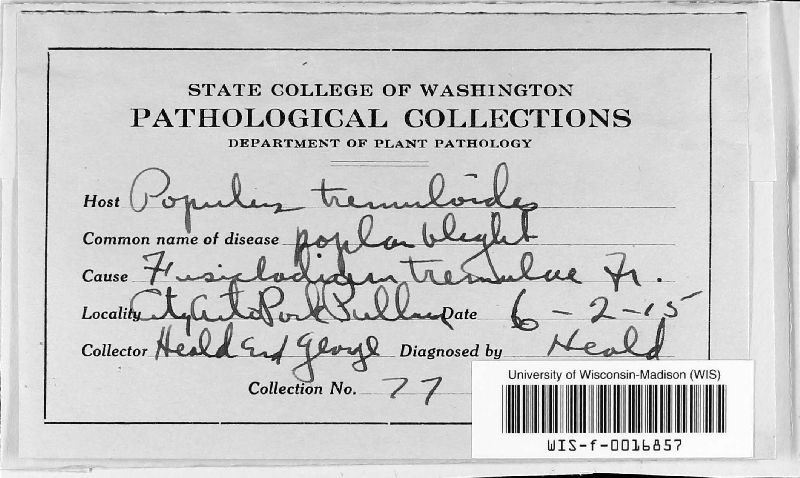 STATE COLLEGE OF WASHINGTON
PATHOLOGICAL COLLECTIONS
DEPARTMENT OF PLANT PATHOLOGY
Host Populus tremuloides
Common name of disease poplar blight
Cause Fusicladium tremulae Fr.
Locality City Auto Park Pullman Date 6-2-15
Collector Heald and George Diagnosed by Heald
Collection No. 77
University of Wisconsin-Madison (WIS)
WIS-f-0016857